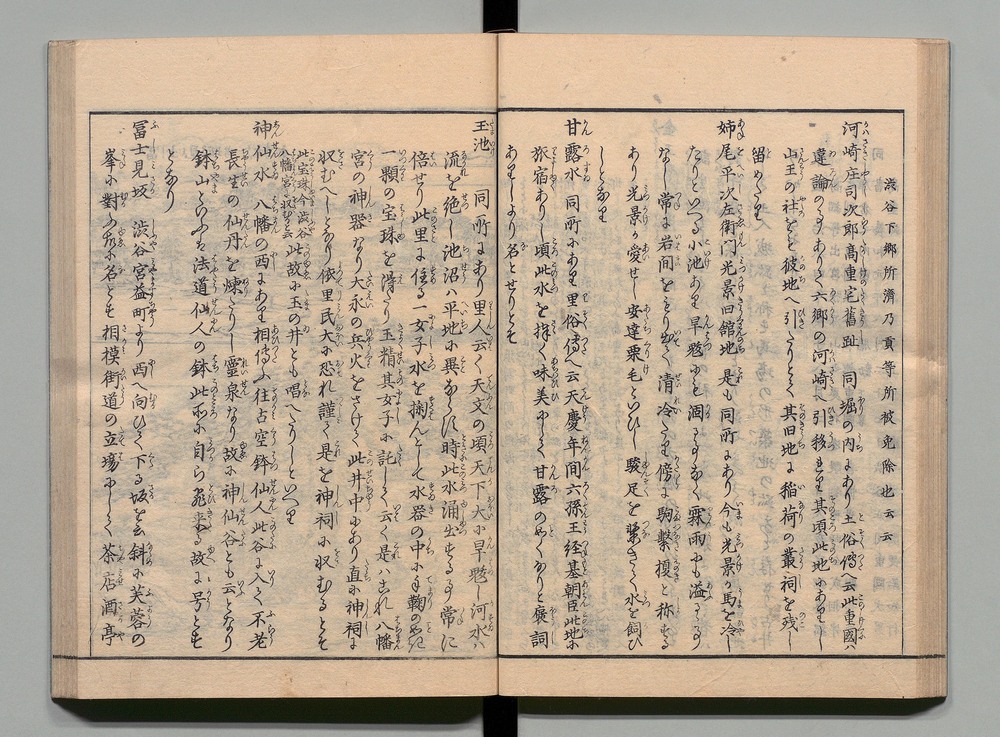 渋谷下郷所済乃貢等所被免除也云云
河崎庄司次郎高重宅舊趾　同堀の内にあり土俗傳云此重國ハ
違論の事ありて六郷の河崎へ引移れり其頃此地にありし
山王の社をも彼地へ引たりとて其旧地に稲荷の叢祠を残し
留めたり
姉尾平次左衛門光景旧舘地　是も同所にあり今も光景が馬を冷し
たりといへる小池あり旱魃にも涸ることなく霖雨にも溢ることなし
なし常に岩間をもりて清冷たり傍に駒繋榎と称せる
あり光景が愛せし安達栗毛といひし駿足を繋ぎて水を飼ひ
しとなり
甘露水　同所にあり里俗傳へ云天慶年間六孫王経基朝臣此地に
旅宿ありし頃此水を掬て味美にして甘露のごとくなりと褒詞
ありしより名とせりとぞ
玉池　同所にあり里人云く天文の頃天下大に旱魃し河水ハ
流を絶し池沼ハ平地に異ならず時此水涌出する事常に
倍せり此里に住る一女子水を掬んとして水器の中に手鞠のごとき
一顆の宝珠を得たり玉精其女子に託して云く是ハこれ八幡
宮の神器なり大永の兵火をさけて此井中にあり直に神祠に
収むへしとなり依里民大に恐れ謹て是を神祠に収むるとぞ
此宝珠今渋谷八幡宮に収むと云　此故に玉の井とも唱へたりしといへり
神仙水　八幡の西にあり相傳ふ往古空鉢仙人此谷に入て不老
長生の仙丹を煉たりし靈泉なり故に神仙谷とも云となり
鉢山といふハ法道仙人の鉢此所に自ら飛来る故に号とぞ
となり
冨士見坂　渋谷宮益町より西へ向ひて下る坂を云斜に芙蓉の
峯に對ふ故に名とす相模街道の立場にして茶店酒亭